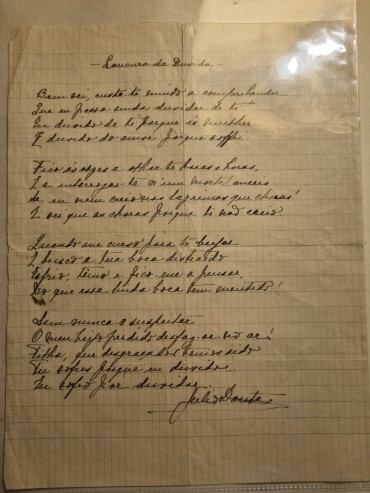 — Loucura da Duvida —
Bem sei, custa-te muito a comprehender
Que eu possa ainda duvidar de ti
Eu duvido de ti porque és mulher
E duvido do amor porque soffri
Fico ás vezes a olhar-te horas e horas,
E a interrogar-te n'um mortal anceio
de eu nem creio nas lagrimas que choras!
E sei que as choras porque te não creio.
Quando me curvo para te beijar
E busco a tua boca distraido
Hesito, tremo e fico-me a pensar
No que essa linda boca tem mentido!
Sem nunca o suspeitar
O meu beijo perdido desfaz-se no ar!
Filha, que desgraçados temos sido
Tu soffres porque eu duvido..
Eu soffro por duvidar..
Julio Dantas